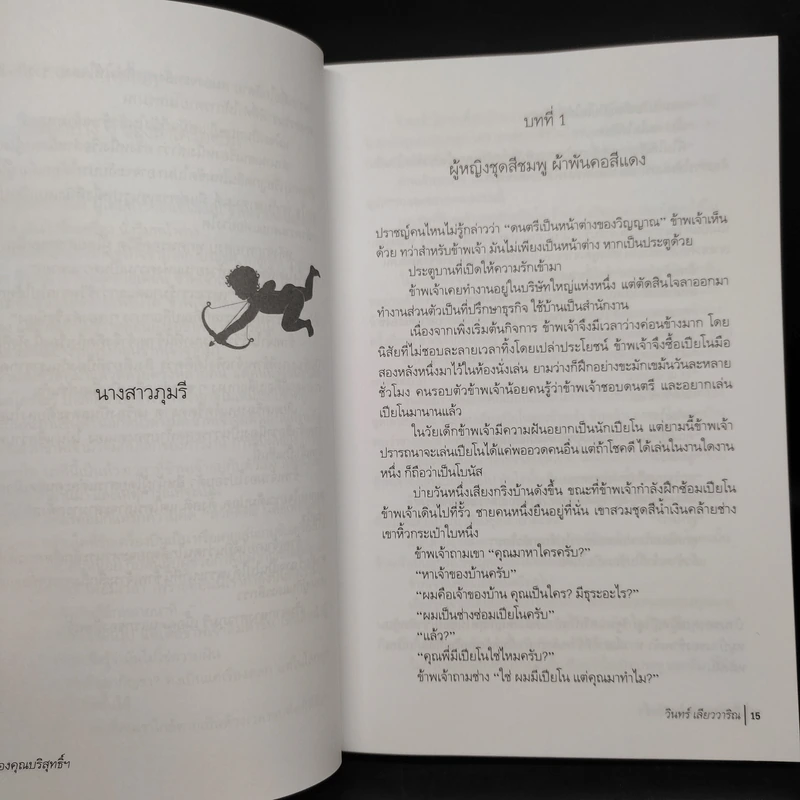 นางสาวภุมรี
องคุณบริสุทธิ์ฯ
บทที่ 1
ผู้หญิงชุดสีชมพู ผ้าพันคอสีแดง
ปราชญ์คนไหนไม่รู้กล่าวว่า “ดนตรีเป็นหน้าต่างของวิญญาณ” ข้าพเจ้าเห็น
ด้วย ทว่าสำหรับข้าพเจ้า มันไม่เพียงเป็นหน้าต่าง หากเป็นประตูด้วย
ประตูบานที่เปิดให้ความรักเข้ามา
ข้าพเจ้าเคยทำงานอยู่ในบริษัทใหญ่แห่งหนึ่ง แต่ตัดสินใจลาออกมา
ทำงานส่วนตัวเป็นที่ปรึกษาธุรกิจ ใช้บ้านเป็นสำนักงาน
เนื่องจากเพิ่งเริ่มต้นกิจการ ข้าพเจ้าจึงมีเวลาว่างค่อนข้างมาก โดย
นิสัยที่ไม่ชอบละลายเวลาทิ้งโดยเปล่าประโยชน์ ข้าพเจ้าจึงซื้อเปียโนมือ
สองหลังหนึ่งมาไว้ในห้องนั่งเล่น ยามว่างก็ฝึกอย่างขะมักเขม้นวันละหลาย
ชั่วโมง คนรอบตัวข้าพเจ้าน้อยคนรู้ว่าข้าพเจ้าชอบดนตรี และอยากเล่น
เปียโนมานานแล้ว
ในวัยเด็กข้าพเจ้ามีความฝันอยากเป็นนักเปียโน แต่ยามนี้ข้าพเจ้า
ปรารถนาจะเล่นเปียโนได้แค่พออวดคนอื่น แต่ถ้าโชคดี ได้เล่นในงานใดงาน
หนึ่ง ก็ถือว่าเป็นโบนัส
บ่ายวันหนึ่งเสียงกริ่งบ้านดังขึ้น ขณะที่ข้าพเจ้ากำลังฝึกซ้อมเปียโน
ข้าพเจ้าเดินไปที่รั้ว ชายคนหนึ่งยืนอยู่ที่นั่น เขาสวมชุดสีน้ำเงินคล้ายช่าง
เขาหิ้วกระเป๋าใบหนึ่ง
ข้าพเจ้าถามเขา “คุณมาหาใครครับ?”
“หาเจ้าของบ้านครับ”
“ผมคือเจ้าของบ้าน คุณเป็นใคร? มีธุระอะไร?”
“ผมเป็นช่างซ่อมเปียโนครับ”
“แล้ว?”
“คุณพี่มีเปียโนใช่ไหมครับ?”
ข้าพเจ้าถามช่าง “ใช่ ผมมีเปียโน แต่คุณมาทำไม?”
วินทร์ เลียววาริณ | 15